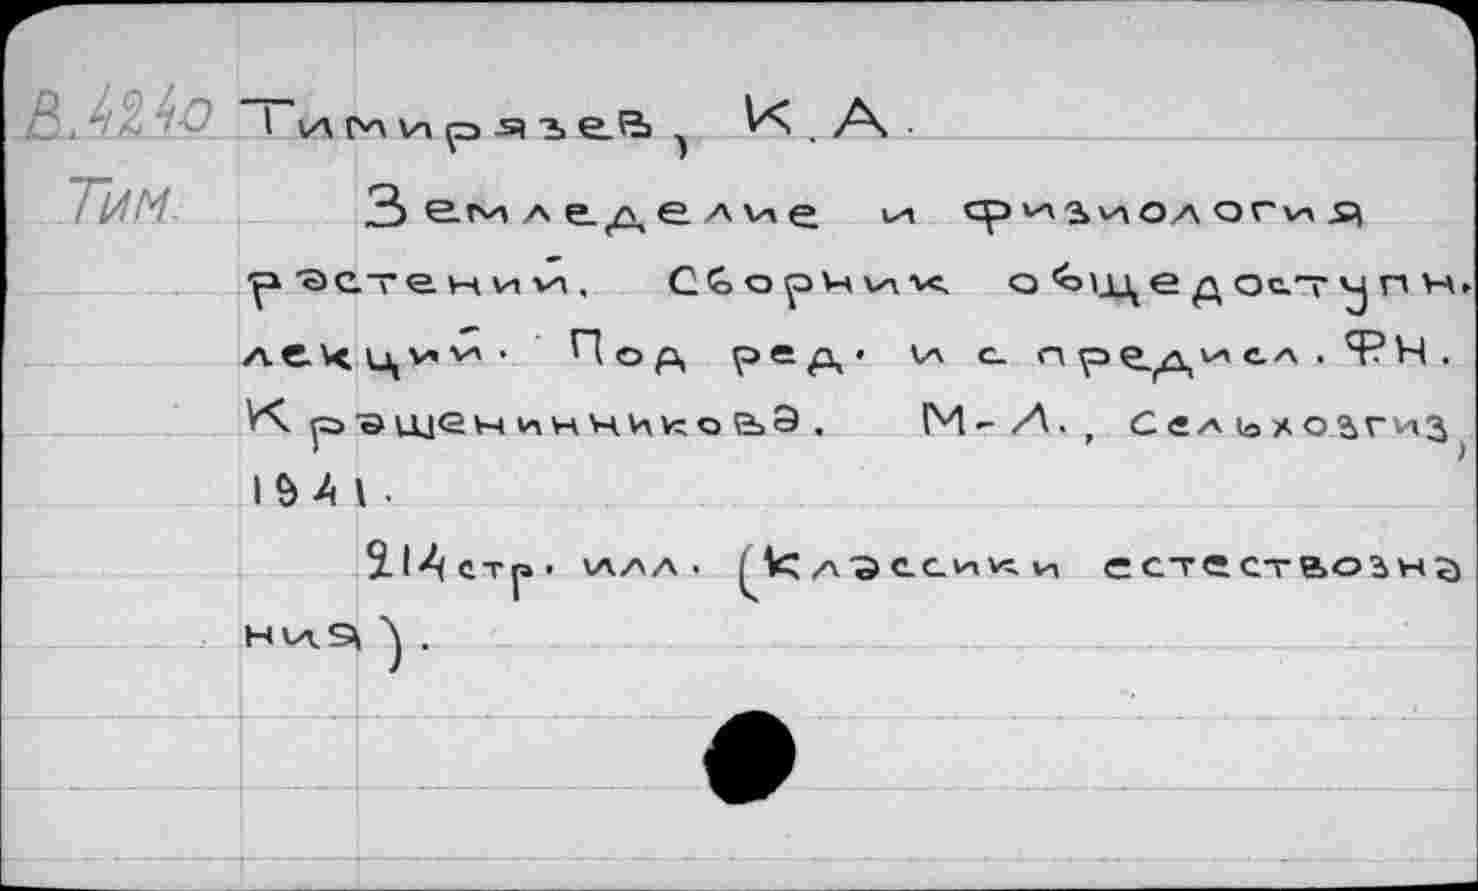 В.4240 Тимирязев, К.А.
Тим. Земледелие и физиология
растений. Сборник общедоступн.
лекций. Под ред. и с предисл. Ф.Н.
Крашенинникова. М-Л., Сельхозгиз,
1941.
214стр. илл. (Классики естествозна
ния).